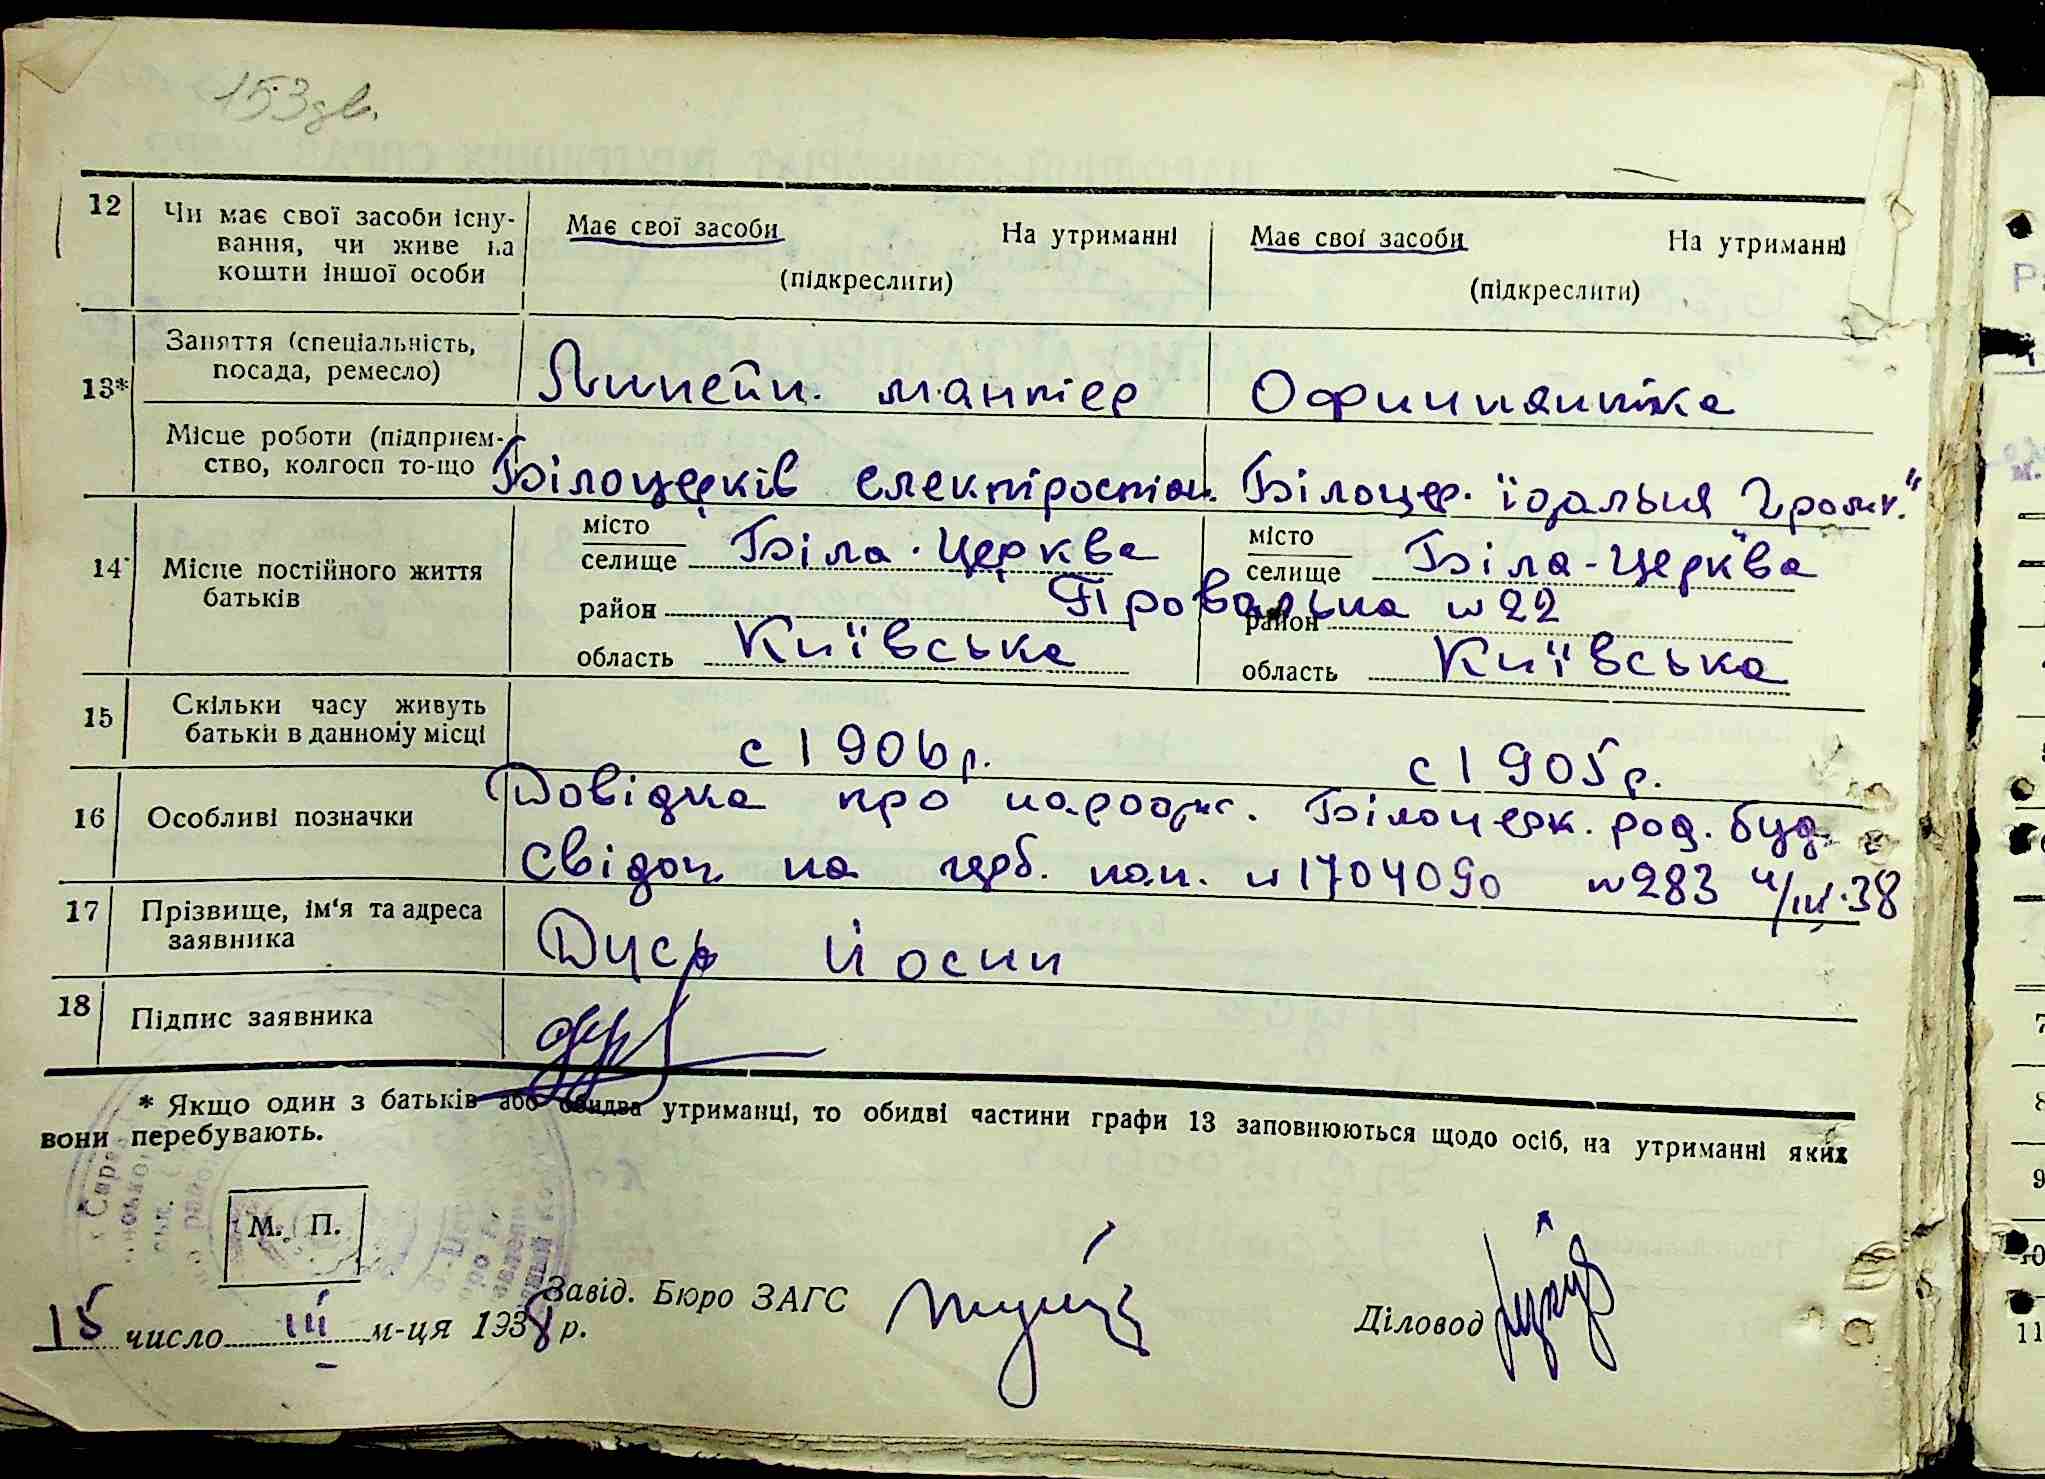 153зв.
12 Чи має свої засоби існу- Має свої засоби На утриманні Має свої засоби На утриманні
вання, чи живе на
кошти іншої особи (підкреслити) (підкреслити)
13* Заняття (спеціальність, Линейн. мантьер Официянтка
посада, ремесло)
Місце роботи (підприєм- Білоцерків електростан. Білоцер. їдальня
ство, колгосп то-що
14 Місце постійного життя місто Біла-Церква місто Біла-Церква
батьків селище селище
район Провальна №22 район
область Київська область Київська
15 Скільки часу живуть с 1906 р. с 1905 р.
батьки в данному місці
16 Особливі позначки Довідка про народж. Білоцерк. род. буд.
Свідоч на герб. пап. №1704090 №283 4/III.38
17 Прізвище, ім'я та адреса Дусь Йосип
заявника
18 Підпис заявника
* Якщо один з батьків або обидва утриманці, то обидві частини графи 13 заповнюються щодо осіб, на утриманні яких
вони перебувають.
М. П.
15 число III м-ця 1938 р. Завід. Бюро ЗАГС Діловод